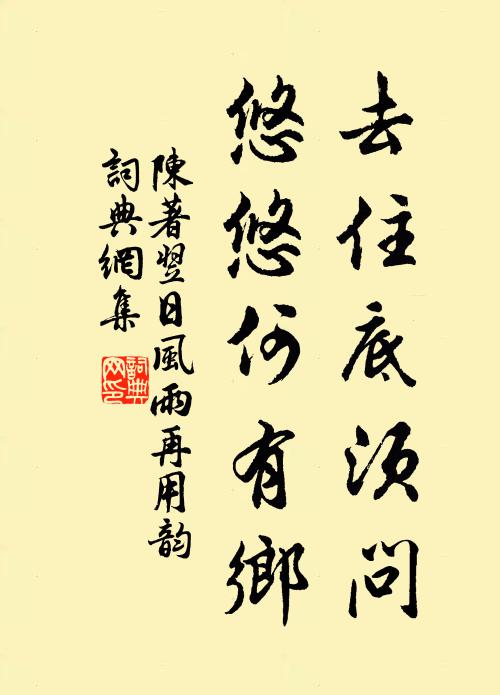 去住底須問
悠悠何有鄉
陳著翌日風雨再用韵
詞典網集
詞典
网印